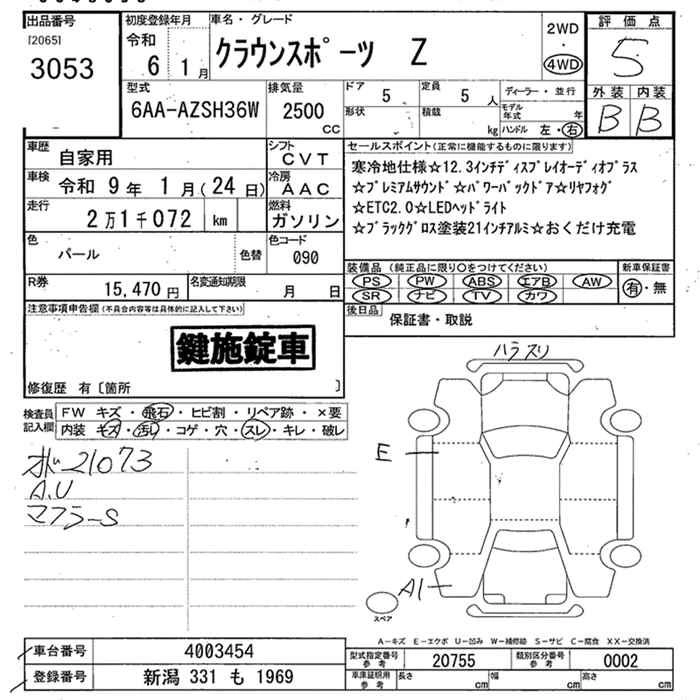 出品番号
[2065]
3053
初度登録年月
令和
6 1月
車名・グレード
クラウンスポーツ Z
2WD
・
4WD
評価点
5
外装 内装
B B
型式
6AA-AZSH36W
排気量
2500
CC
ドア
5
定員
5 人
形状
積載
kg
ディーラー・並行
モデル年式
年
ハンドル 左・右
車歴
自家用
車検
令和 9年 1月(24日)
走行
2万1千072 km
色
パール
色替
シフト
CVT
冷房
AAC
燃料
ガソリン
色コード
090
R券
15,470円
名変通知期限
月 日
セールスポイント(正常に機能するものに限ります)
寒冷地仕様☆12.3インチディスプレイオーディオプラス
☆プレミアムサウンド☆パワーバックドア☆リヤフォグ
☆ETC2.0☆LEDヘッドライト
☆ブラックグロス塗装21インチアルミ☆おくだけ充電
装備品(純正品に限り○をつけてください)
PS PW ABS エアB AW
SR ナビ TV カワ
新車保証書
有・無
後日品
保証書・取説
注意事項申告欄(不具合内容等は具体的に記入して下さい)
鍵施錠車
修復歴 有〔箇所 〕
検査員
記入欄
FW キズ・飛石・ヒビ割・リペア跡・×要
内装 キズ・汚レ・コゲ・穴・スレ・キレ・破レ
21073
A.U
マフラーS
ハラスリ
E
A1
スペア
A-キズ E-エクボ U-凹み W-補修跡 S-サビ C-腐食 XX-交換済
車台番号
4003454
登録番号
新潟 331 も 1969
型式指定番号
参考
20755
類別区分番号
参考
0002
車庫証明用
参考
長さ
cm
幅
cm
高さ
cm